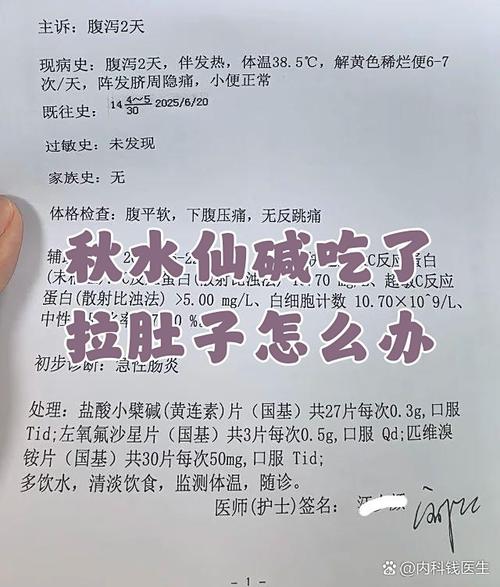 主诉：腹泻2天
现病史：腹泻2天，伴发热，体温38.5℃，解黄色稀烂便6-7
次/天，阵发脐周隐痛，小便正常
既往史：14 4~5/30 2025/6/20
过敏史：未发现
家族史：无
体格检查：腹平软，下腹压痛，无反跳痛
秋水仙碱吃了
反应蛋白
反应
蛋白(散射比浊法) >5.00 mg/L、白细胞计数 10.70×10^9/L、
中性
拉肚子怎么办
初步诊断：急性肠炎
处理：盐酸小檗碱(黄连素)片（国基）共27片每次0.3g,口服
Tid;左氧氟沙星片（国基）共3片每次0.5g,口服 Qd;匹维溴
铵片（国基）共30片每次50mg,口服 Tid;
多饮水，清淡饮食，监测体温，随诊。
医师(护士)签名：
@内科钱医生
- 1 -